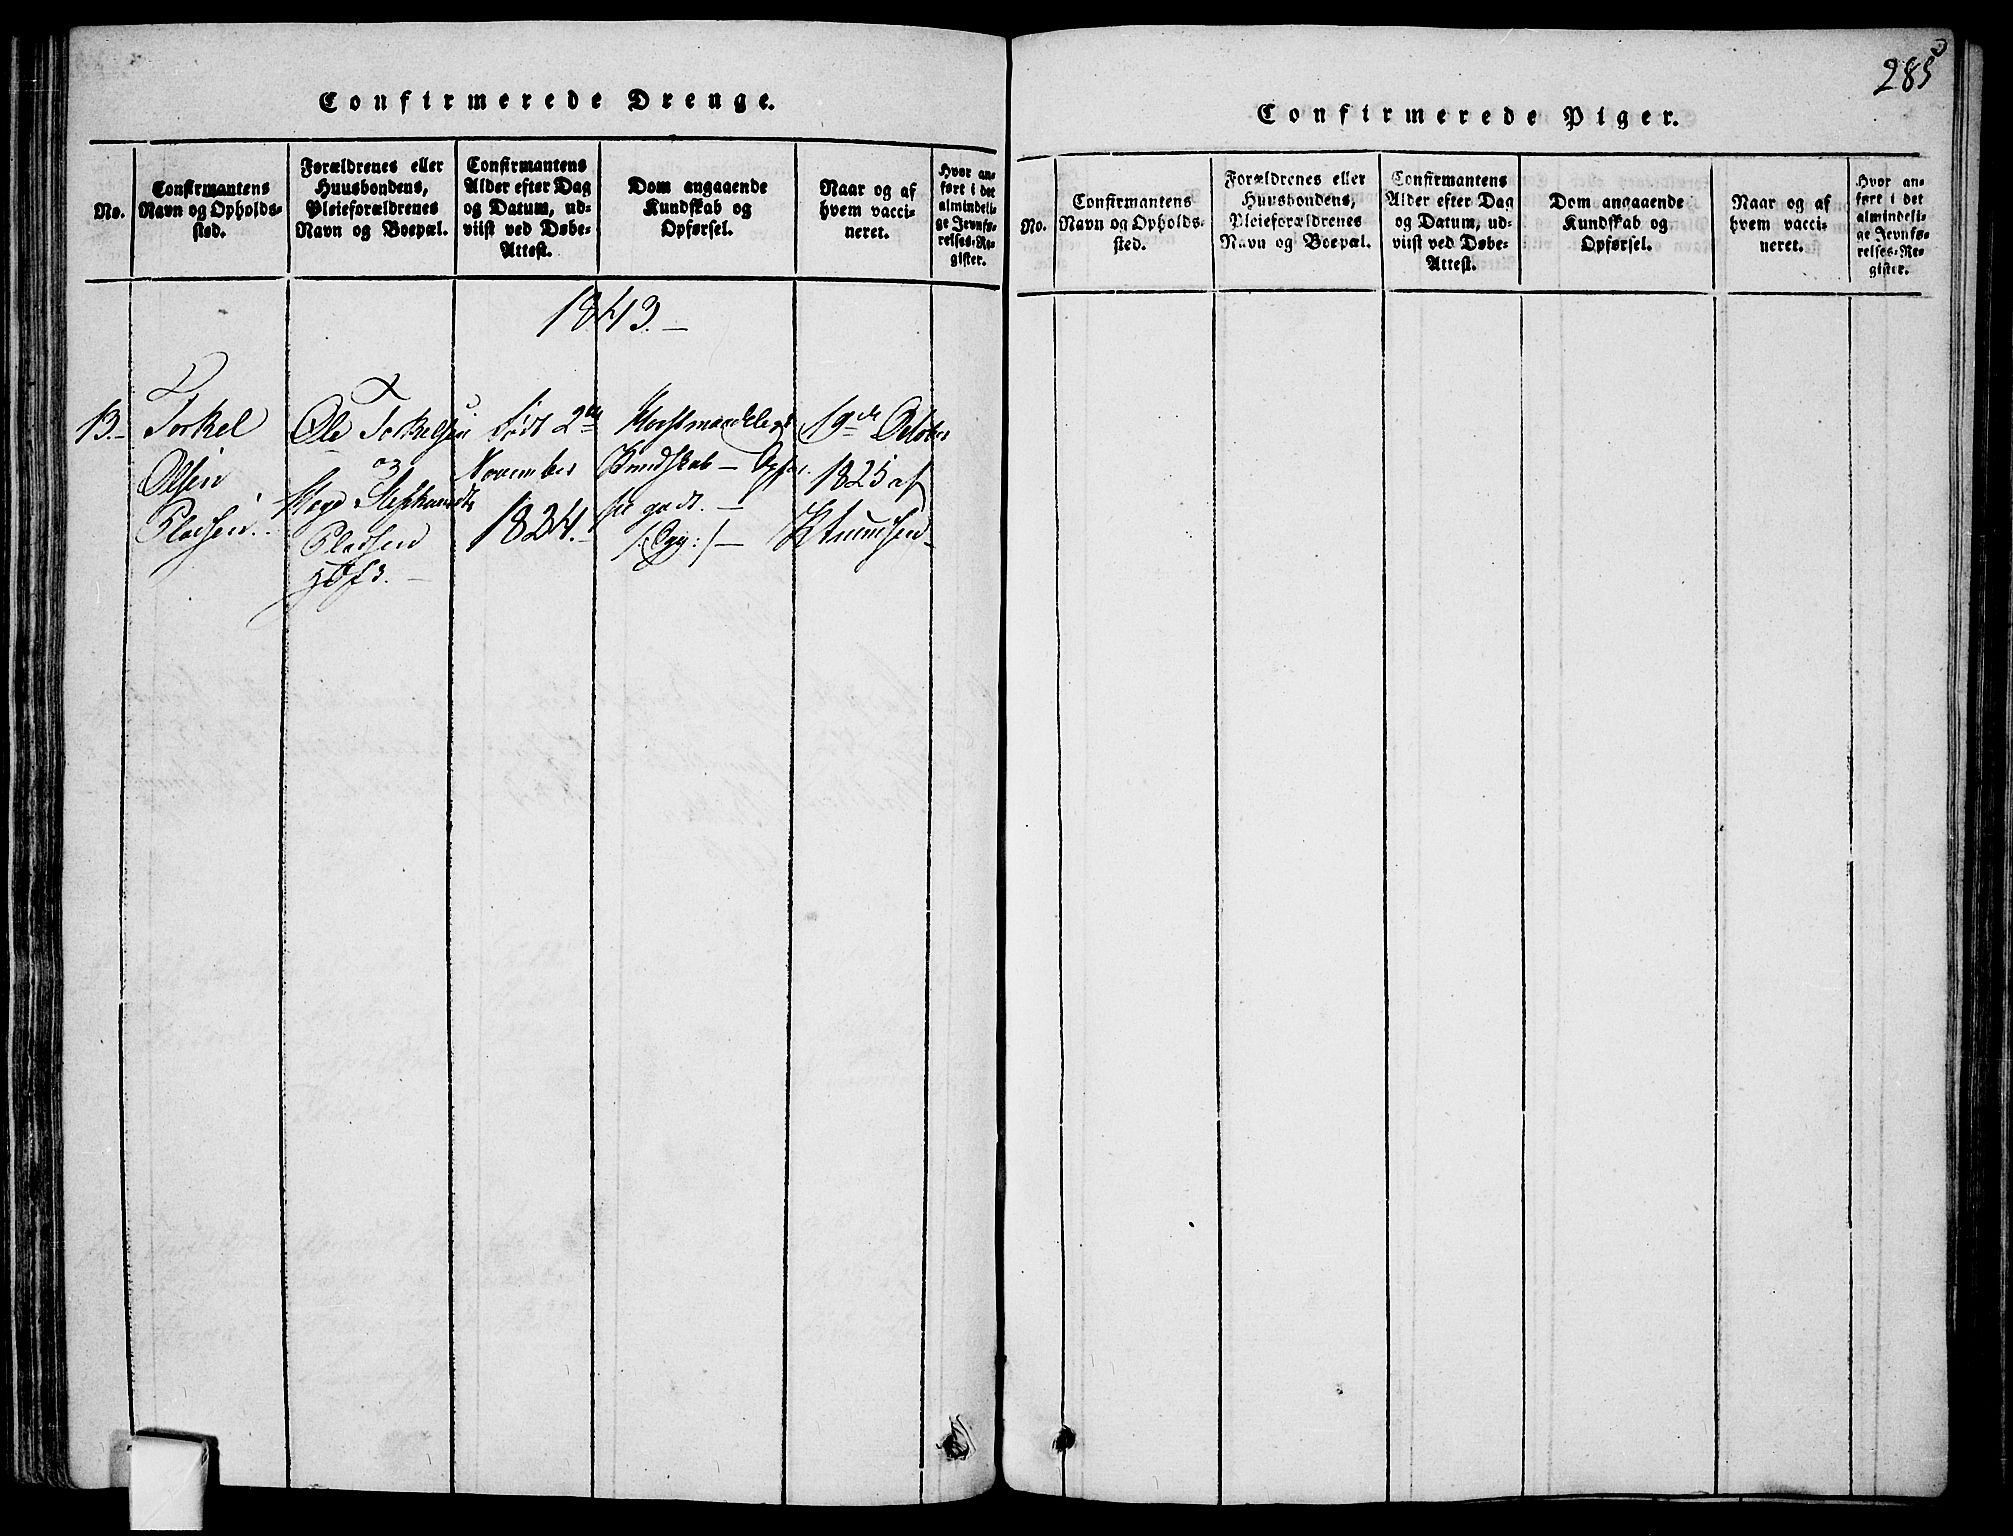 285
Confirmerede Drenge.
No.
Confirmantens
Navn og Opholds-
sted.
Forældrenes eller
Huusbondens,
Pleieforældrenes
Navn og Boepæl.
Confirmantens
Alder efter Dag
og Datum, ud-
viist ved Døbe-
Attest.
Dom angaaende
Kundskab og
Opførsel.
Naar og af
hvem vacci-
neret.
Hvor an-
ført i det
almindeli-
ge Jevnfø-
relses-Re-
gister.
1843.
13.
Torkel
Olsen
Pladsen.
Ole Torkelsen
og
Steph
Pladsen
Født 2den
November
1824.
Kundskab - Opfør-
sel godt. -
19de October
1825 af
Knudsen
Confirmerede Piger.
No.
Confirmantens
Navn og Opholds-
sted.
Forældrenes eller
Huusbondens,
Pleieforældrenes
Navn og Boepæl.
Confirmantens
Alder efter Dag
og Datum, ud-
viist ved Døbe-
Attest.
Dom angaaende
Kundskab og
Opførsel.
Naar og af
hvem vacci-
neret.
Hvor an-
ført i det
almindeli-
ge Jevnfø-
relses-Re-
gister.